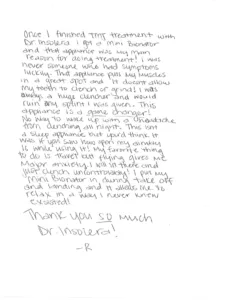 Once I finished TMJ treatment with
Dr. Insolera I got a mini Bionator
and that appliance was my main
reason for doing treatment! I was
never someone who had symptoms
luckily. That appliance puts my muscles
in a great spot and it doesnt allow
my teeth to clench or grind! I was
a huge clencher and would
ruin any splint I was given. This
appliance is a game changer!
No way to wake up with a headache
from clenching all night. This isnt
a sleep appliance but you'd think it
was if you saw how open my airway
is while using it! My favorite thing
to do is travel but flying gives me
major anxiety. I will sit there and
just clench uncontrollably! I put my
mini Bionator in during take off
and landing and it allows me to
relax in a way I never knew
existed!
Thank you so much
Dr. Insolera!
-R